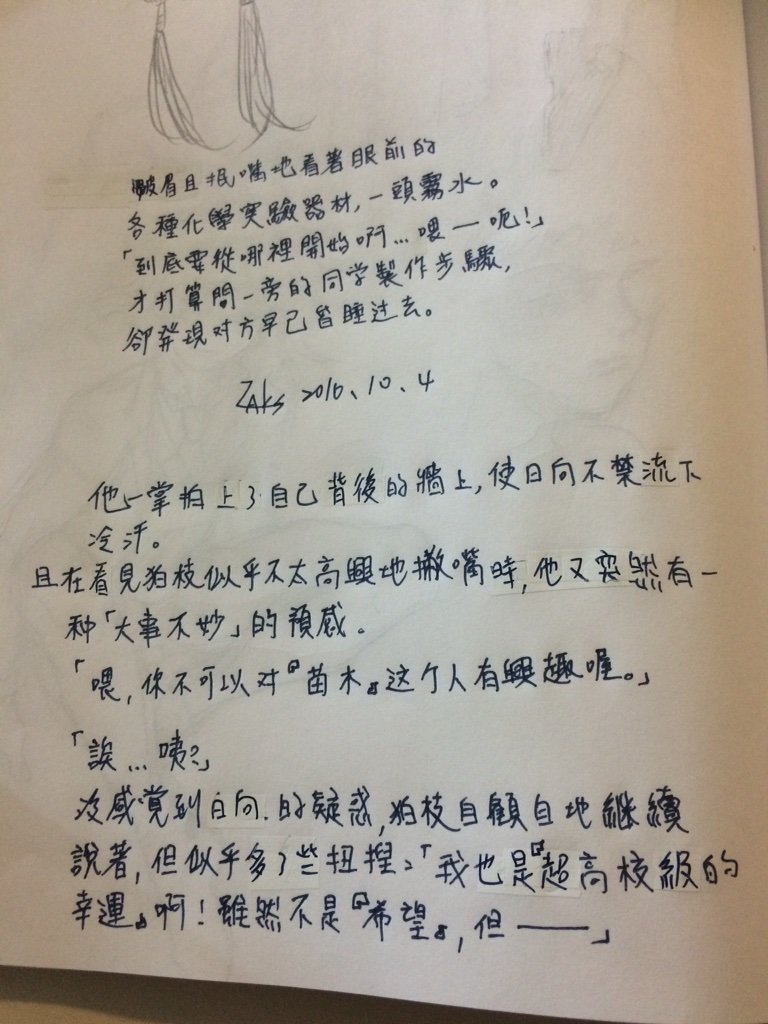 皺眉且抿嘴地看著眼前的
各種化學实驗器材,一頭霧水。
「到底要從哪裡開始啊…喂—呃!」
才打算問一旁的同学製作步驟,
卻発現对方早已昏睡过去。
Zaks 2016、10、4
他一掌拍上了自己背後的牆上,使日向不禁流下
冷汗。
且在看見狛枝似乎不太高興地撇嘴時,他又突然有一
种「大事不妙」的預感。
「喂,你不可以对『苗木』这个人有興趣喔。」
「誒…咦?」
没感覚到日向.的疑惑,狛枝自顧自地継續
說著,但似乎多了些扭捏:「我也是『超高校級的
幸運』啊!雖然不是『希望』,但——」